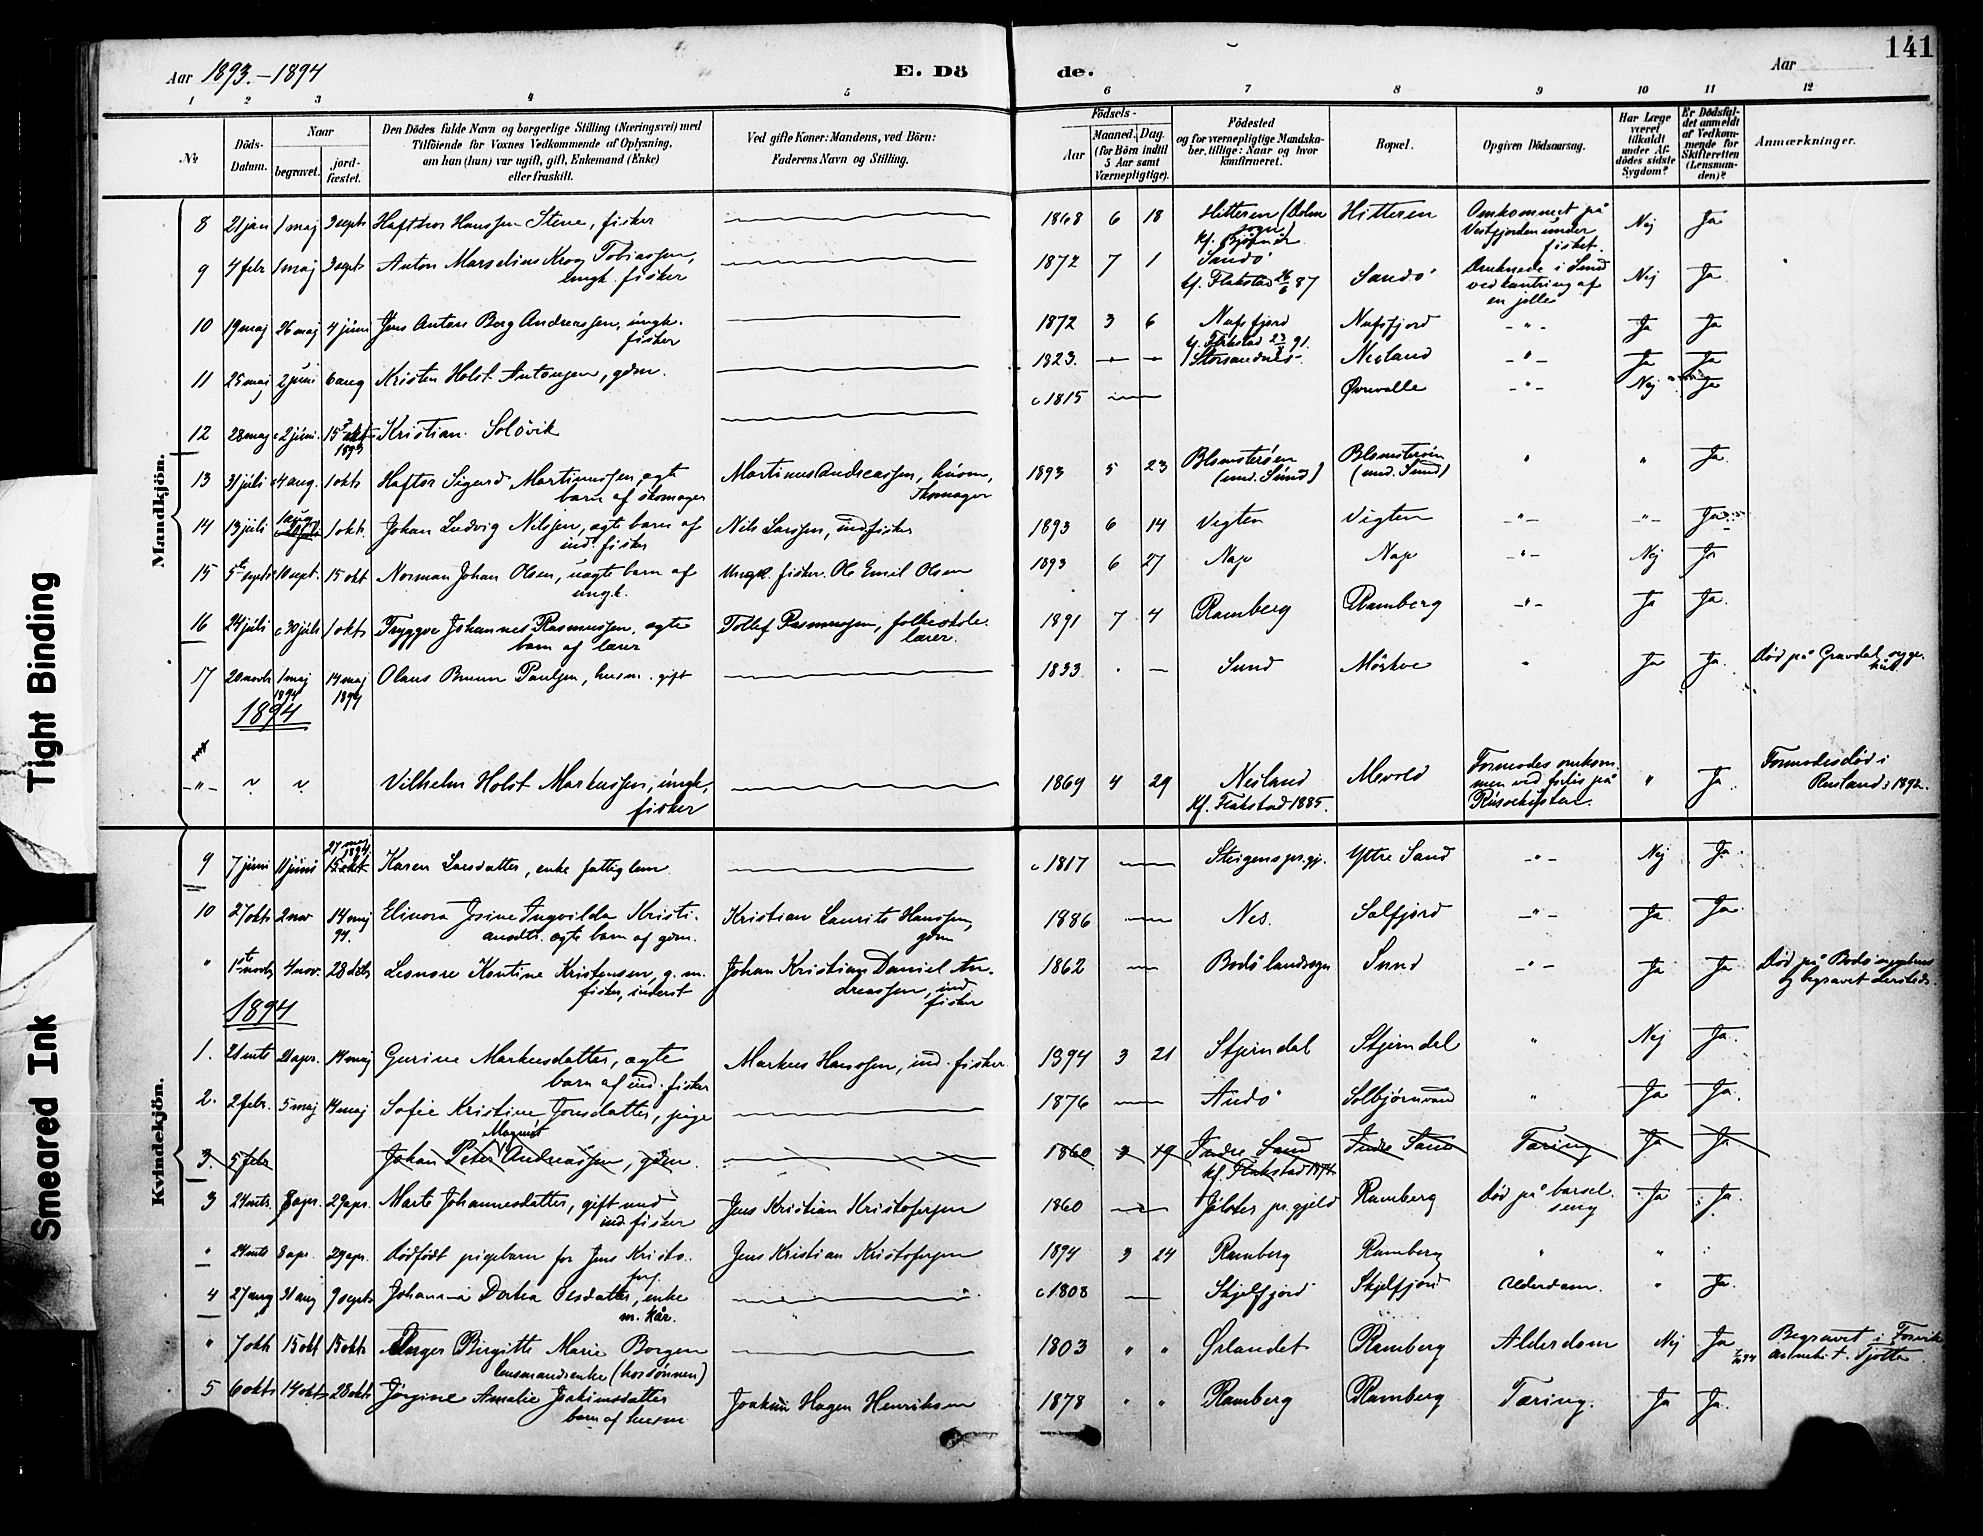 141
Aar 1893.-1894
E. Dö
de.
Aar
1 2 3 4 5 6 7 8 9 10 11 12
No
Döds-Datum.
Naar
begravet.
jord-fæstet.
Den Dödes fulde Navn og borgerlige Stilling (Næringsvei) med
Tilföiende for Voxnes Vedkommende af Oplysning,
om han (hun) var ugift, gift, Enkemand (Enke)
eller fraskilt.
Ved gifte Koner: Mandens, ved Börn:
Faderens Navn og Stilling.
Födsels-
Aar
Maaned. Dag.
(for Börn indtil
5 Aar samt
Værnepligtige).
Födested
og for værnepligtige Mandska-
ber, tillige: Naar og hvor
konfirmeret.
Bopæl.
Opgiven Dödsaarsag.
Har Læge
været
tilkaldt
under Af-
dödes sidste
Sygdom?
Er Dödsfal-
det anmeldt
af Vedkom-
mende for
Skifteretten
(Lensman-
den)?
Anmærkninger.
Mandkjön.
8 21 jan 1 maj 3 septr Hafthor Hanssen Stene, fisker 1868 6 18 Hitteren (Dolm sogn) Hitteren Omkommet på Vestfjorden under fisket. Nej Ja
9 4 febr 1 maj 3 septr Anton Marselius Krog Tobiassen, ungk. fisker 1872 7 1 Sandö kf. Flakstad 26/6 87 Sandö Druknede i Sund ved kantring af en jolle Nej Ja
10 19 maj 26 maj 4 juni Jens Anton Berg Andreassen, ungk. fisker 1872 3 6 Nufsfjord kf. Flakstad 91. Nufsfjord -"- Ja Ja
11 25 maj 2 juni 6 aug Kristen Holst Antonsen, gdm. 1823. Storsandnes Nesland -"- Ja Ja
12 28 maj 2 juni. 15 1893 Kristian Solövik c 1815 Øvrevalle -"- Nej Ja
13 31 juli 4 aug. 1 oktr Haftor Sigurd Martinussen, ægte barn af skomager Martinus Andreassen, husm, skomager 1893 5 23 Blomsterøen (und. Sund) Blomsterøen (und. Sund) " " Ja
14 13 juli 1 aug 1 oktr Johan Ludvig Nilssen, ægte barn af ind. fisker Nils Larssen, ind fisker 1893 6 14 Vigten Vigten -"- -"- Ja
15 5te septr 10 sept. 15 okt Norman Johan Olsen, uægte barn af ungk. Ungk. fisker. Ole Emil Olsen 1893 6 27 Nap Nap -"- Nej Ja
16 24 juli c 30 juli 1 oktr Tryggve Johannes Rasmussen, ægte barn af lærer Tollef Rasmussen, folkeskole lærer. 1891 7 4 Ramberg Ramberg -"- Ja Ja.
17 20 novbr 1 maj 1894 14 maj 1894 Olaus Brunn Paulsen, husm. gift 1833 Sund Möskve " Ja Ja. Död på Gravdal syge hus
1894
-"- Vilhelm Holst Markussen, ungk. fisker 1869 4 29 Nesland kf. Flakstad 1885. Mevold Formodes omkommen ved forlis på Russekysten. " Ja Formodes död i Rusland i 1892.
Kvindekjön.
9 7 juni 11 juni 27 maj 1894 15 okt Karen Larsdatter, enke fattiglem c 1817 Steigens pr.gj. Yttre Sand -"- Nej Ja
10 27 oktr 2 nov 14 maj 94. Elinora Josine Ingvilda Kristi- ansdtr. ægte barn af gdm. Kristian Laurits Hanssen, gdm 1886 Nes. Solfjord -"- Ja Ja
" 1ste novbr 4 nov. 28 Leonore Kentine Kristensen, g. m. fisker, inderst Johan Kristian Daniel An- dreassen, ind fisker 1862 Bodö landsogn Sund -"- Ja Ja Död på Bodö og begravet dersteds.
1894
1. 21 mts 21 apr. 14 maj Gurine Markusdatter, ægte barn af ind. fisker Markus Hanssen, ind. fisker 1894 3 21 Stjerndal Stjerndal " Nej Ja.
2. 2 febr. 5 maj 14 maj Sofie Kristine Jonsdatter, pige 1876 Andö Solbjörnvand " Ja Ja.
3. 5 febr Johan Peter Magnus Andreassen, gdm. 1860 3 19 Indre Sand kf. Flakstad 1874 Indre Sand Tæring Ja Ja
3 24 mts. 8 apr. 29 apr. Marte Johannesdatter, gift med ind. fisker Jens Kristian Kristofersen 1860 Jölster pr.gjeld Ramberg Död på barsel seng Ja Ja.
" 24 mts 8 apr. 29 apr. Dödfödt pigebarn for Jens Kristo- fersen Jens Kristian Kristofersen 1894 3 24 Ramberg Ramberg " "
4 27 aug 31 aug 9 septr Johanna Dortea Olsdatter, enke m. kår. c 1808 Skjelfjord Skjelfjord Alderdom. " Ja.
" 7 okt 15 okt 15 oktr Birgitte Marie Borgen lensmandsenke 1803 " " Ørlandet Ramberg Alderdom Nej Ja Begravet i Forvik Tjötta
5 6 oktr 14 oktr 28 oktr Jørgine Amalie Joakimsdatter barn af husm Joakim Hagen Henriksen 1878 " " Ramberg Ramberg Tæring. Ja Ja.
Tight Binding
Smeared Ink